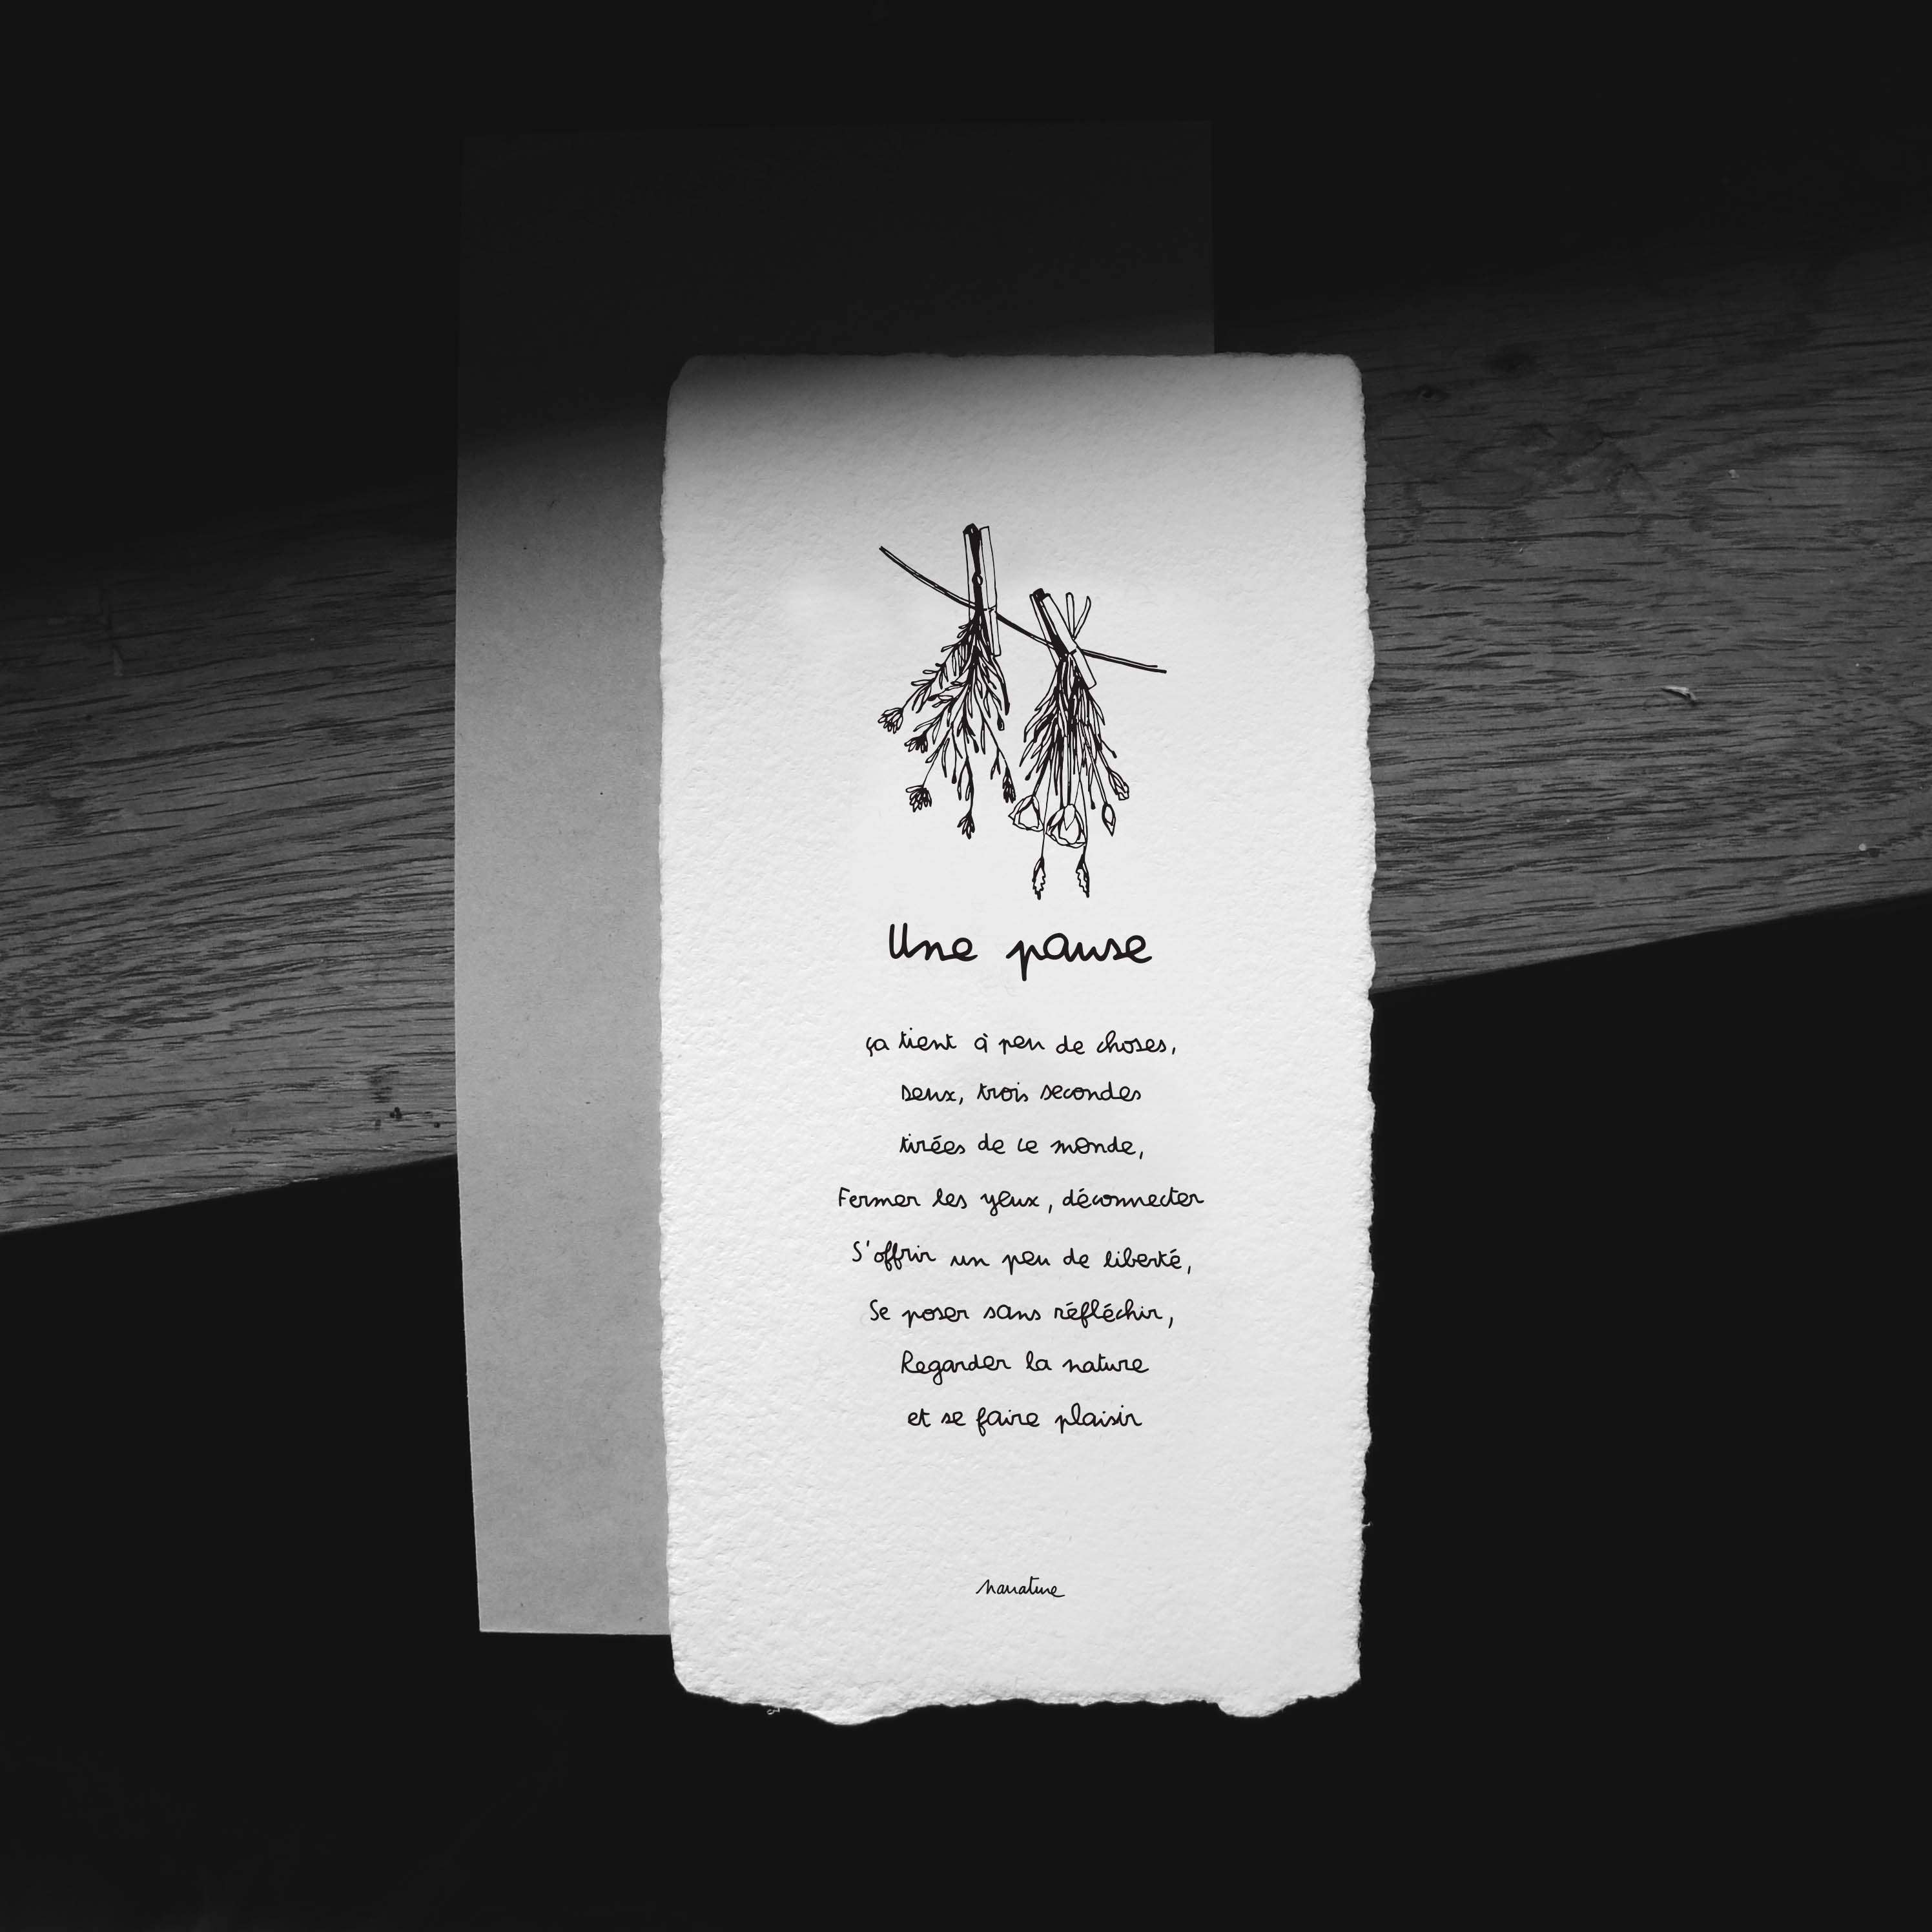 Une pause
ça tient à peu de choses,
deux, trois secondes
tirées de ce monde,
Fermer les yeux, déconnecter
S'offrir un peu de liberté,
Se poser sans réfléchir,
Regarder la nature
et se faire plaisir